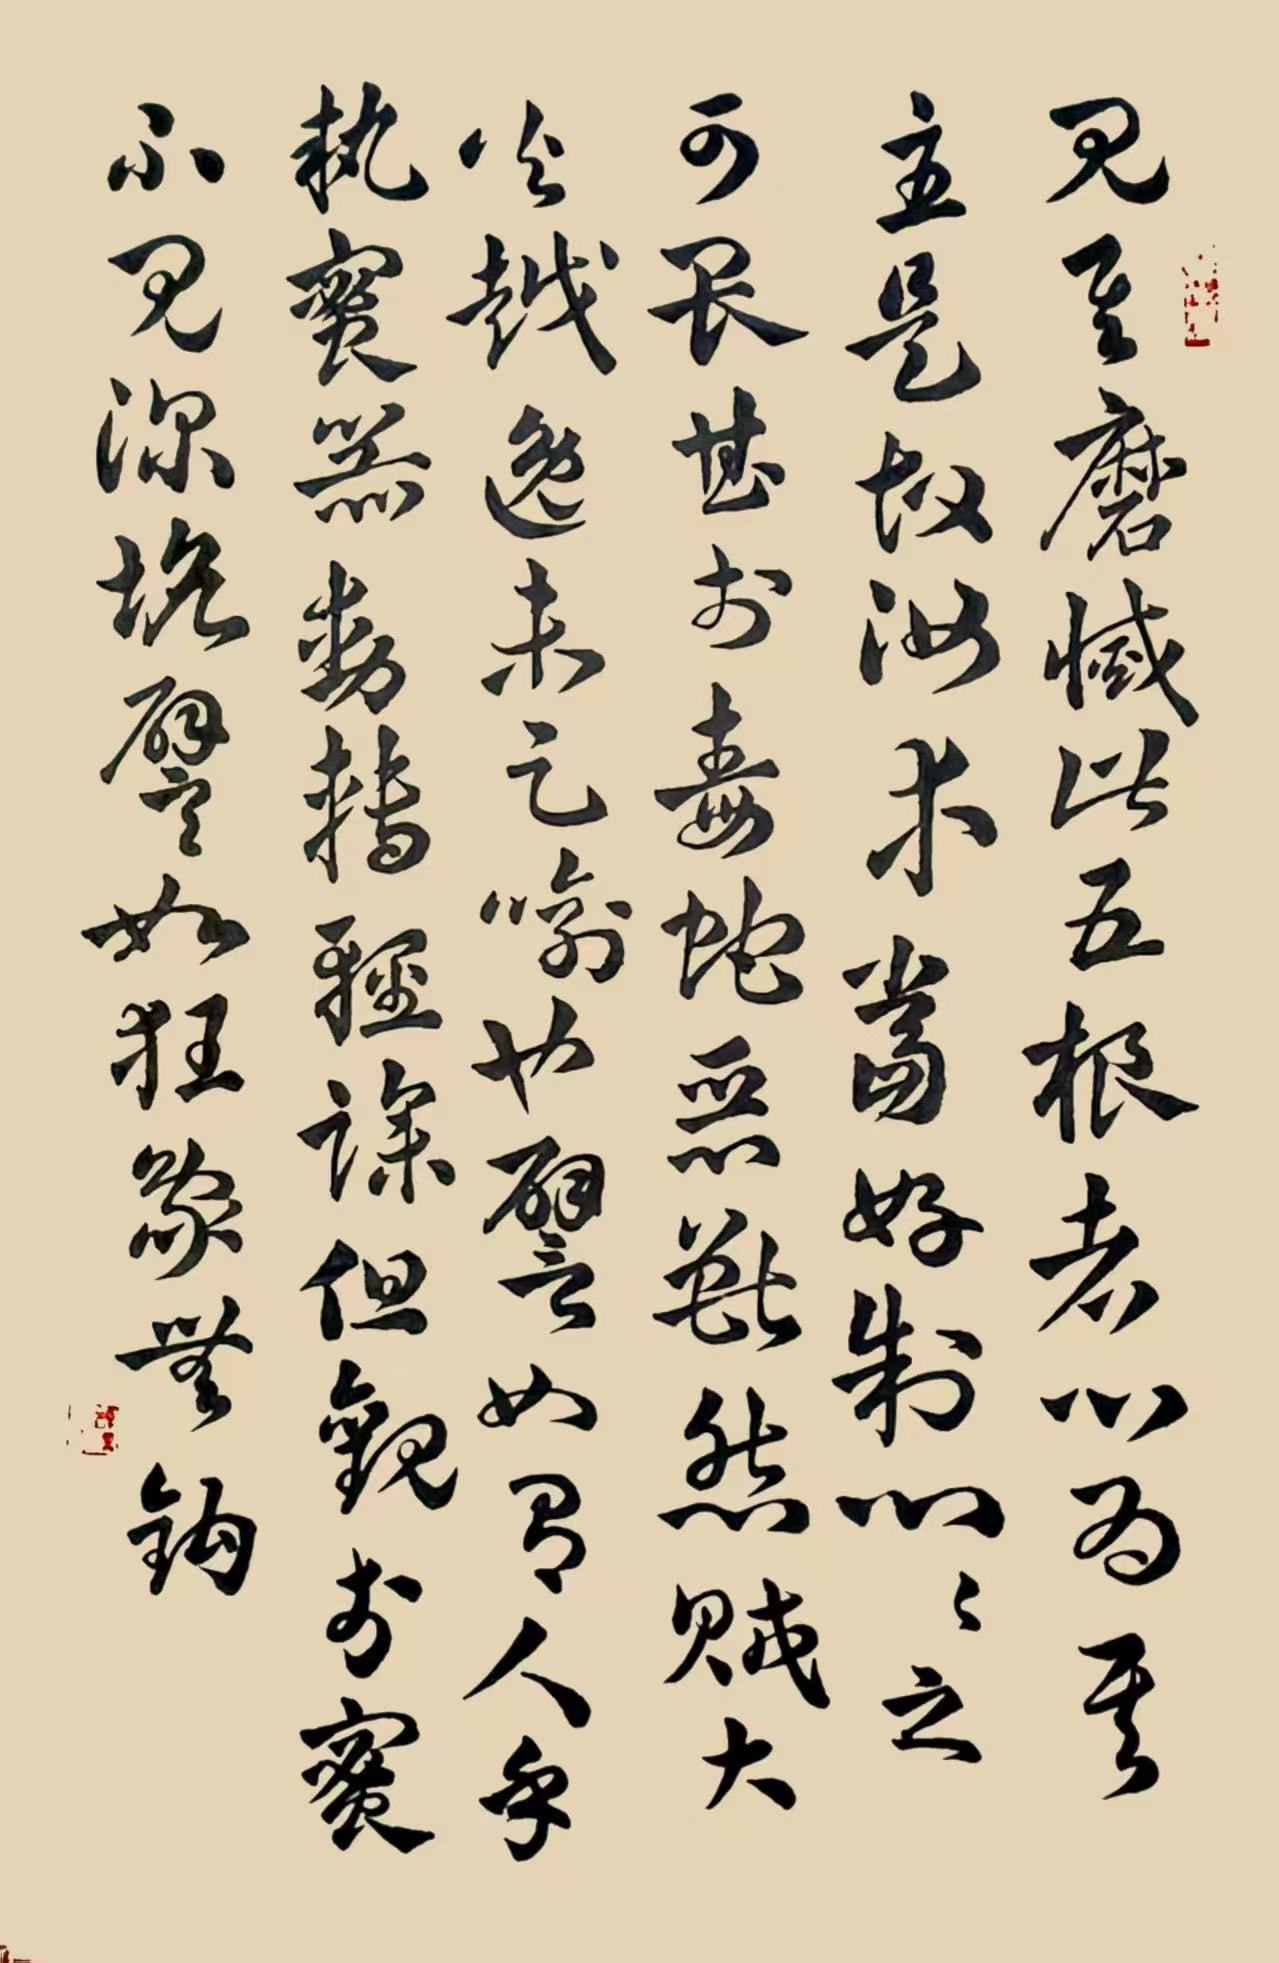 見其磨滅此五根者心為其
主是故汝等當好制心々之
可畏甚於毒蛇惡獸怨賊大
火越逸未足喻也譬如有人手
執蜜器動轉輕躁但觀於蜜
不見深坑譬如狂象無鈎